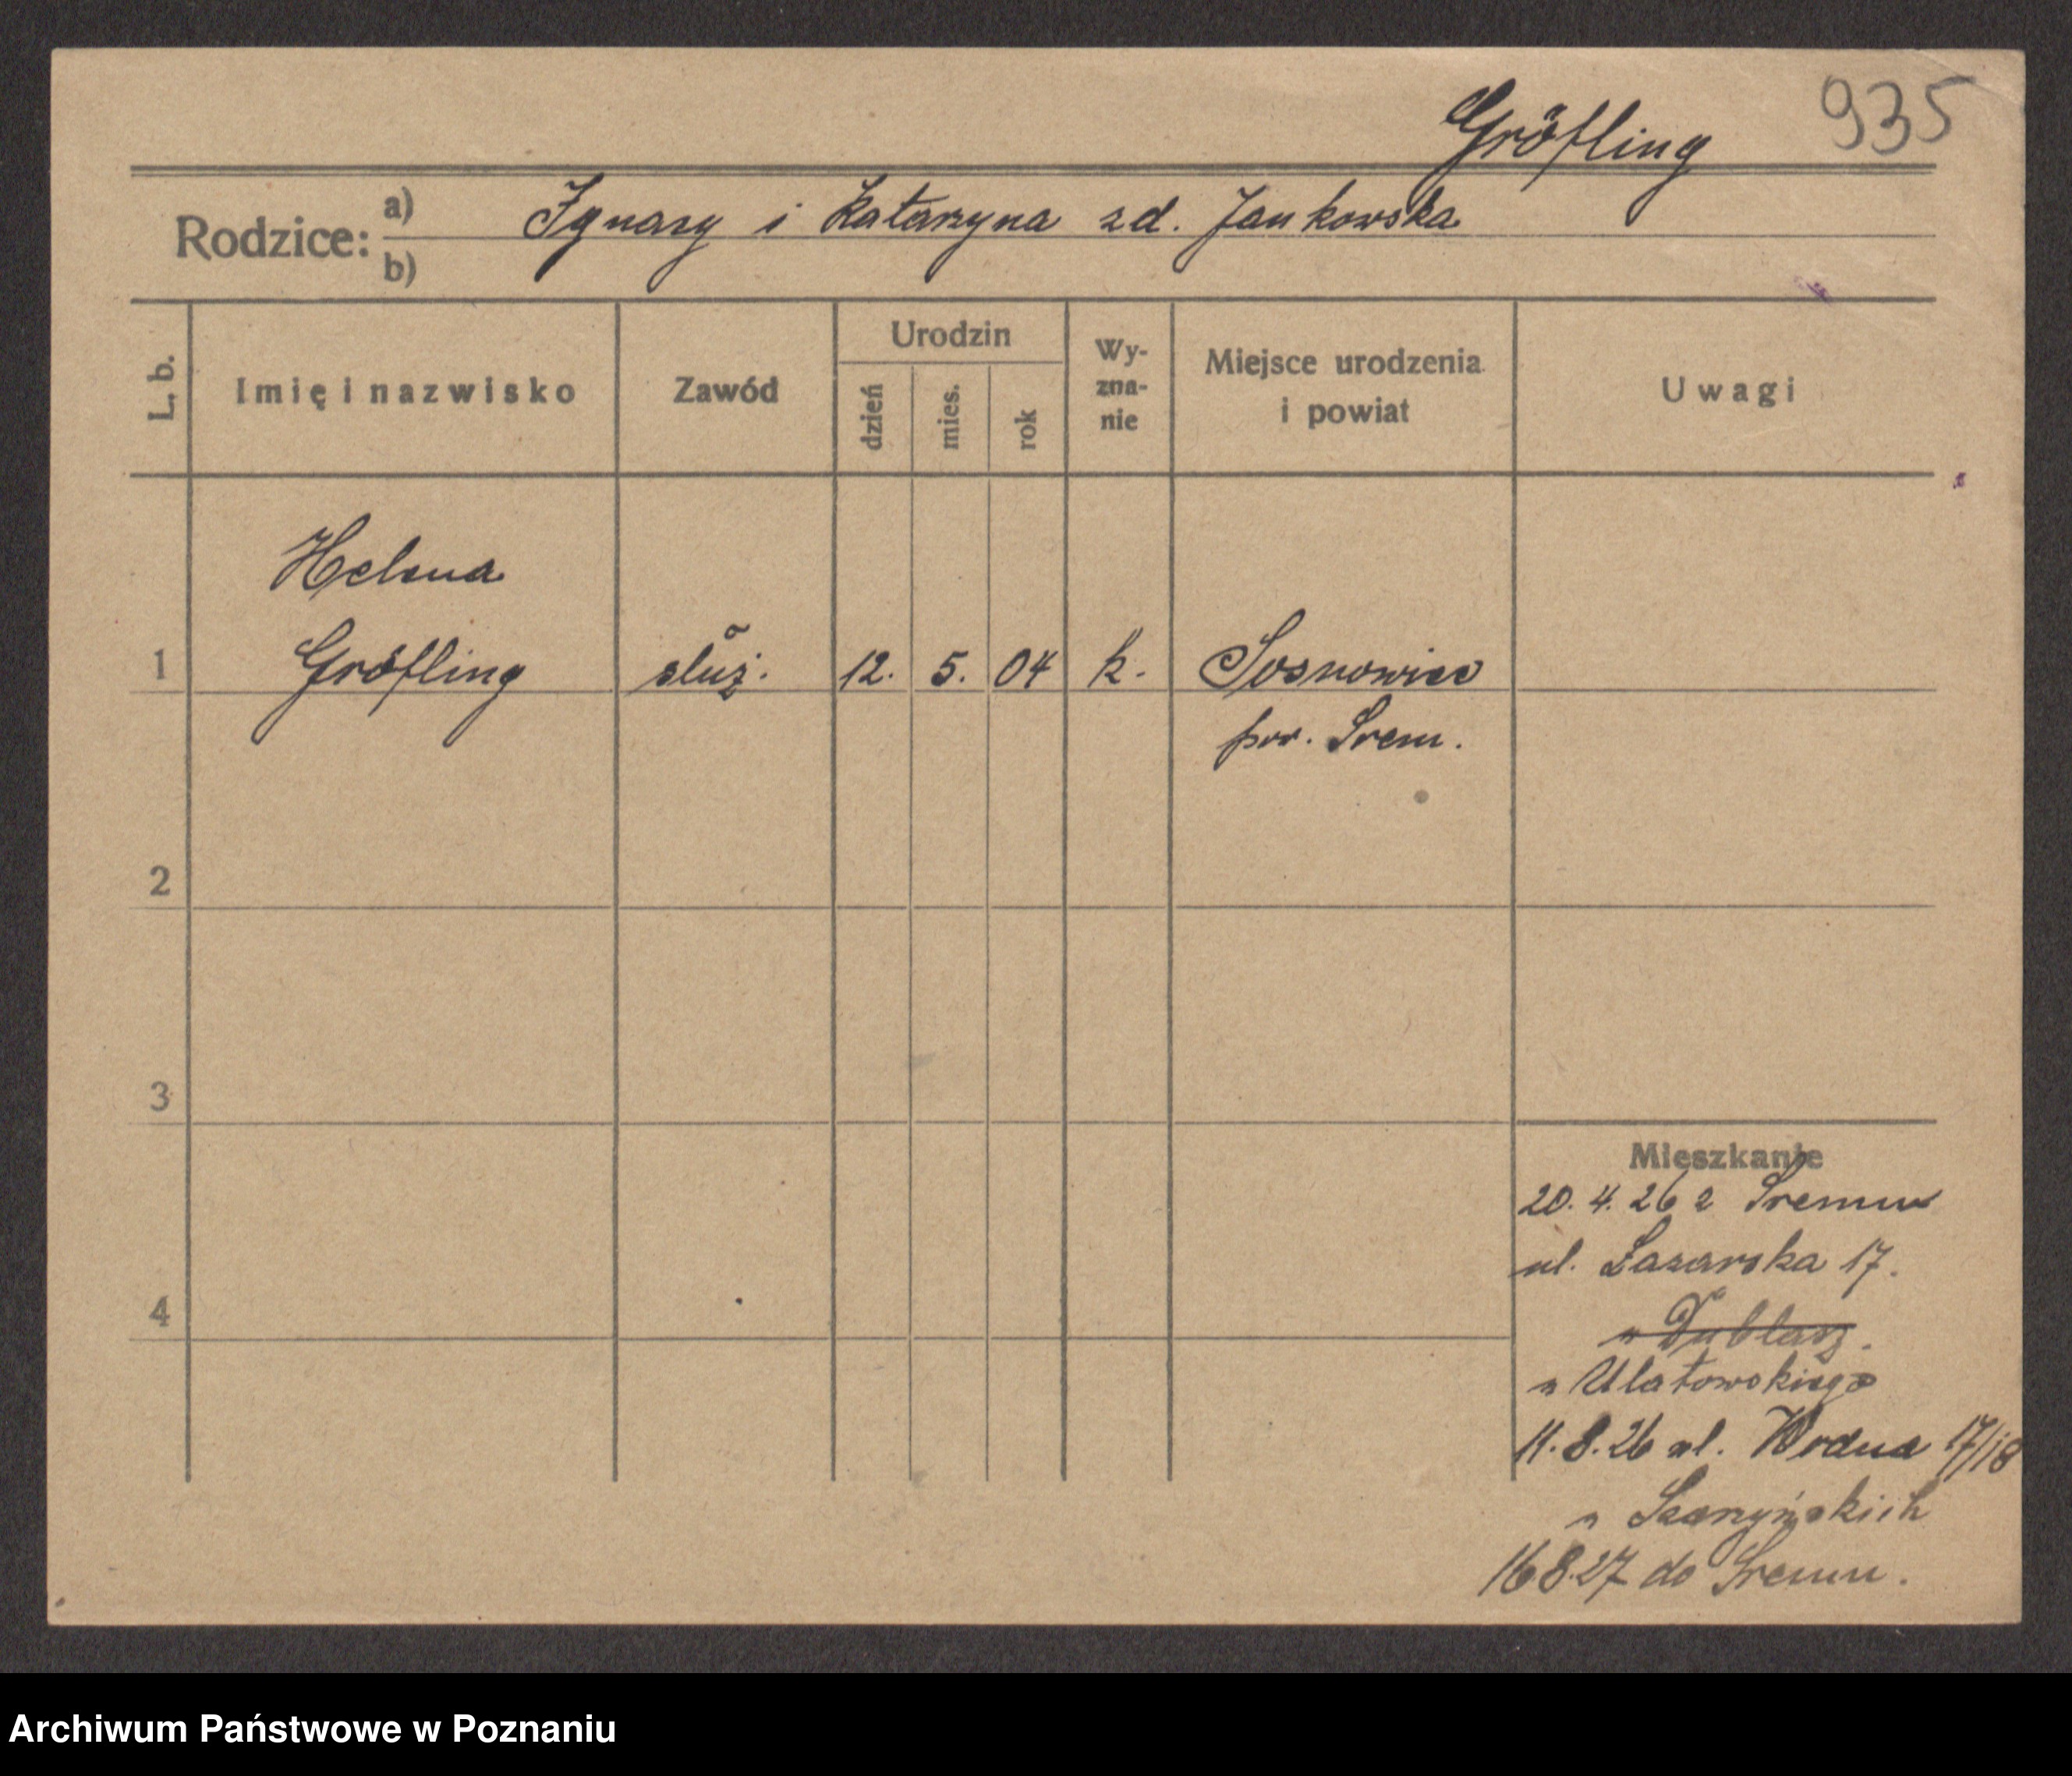 935
Gröfling
Rodzice: a) Ignacy i Katarzyna zd. Jankowska
b)
L. b. Imię i nazwisko Zawód Urodzin dzień mies. rok Wyznanie Miejsce urodzenia i powiat Uwagi
Helena
1 Gröfling służ. 12. 5. 04 k. Sosnowiec
pow. Srem.
2
3
Mieszkanie
20. 4. 26 z Sremu
ul. Łazarska 17.
4
u Ulatowskiego
11. 8. 26 ul. Wodna 17/18
u
16.8.27 do Sremu.
Archiwum Państwowe w Poznaniu